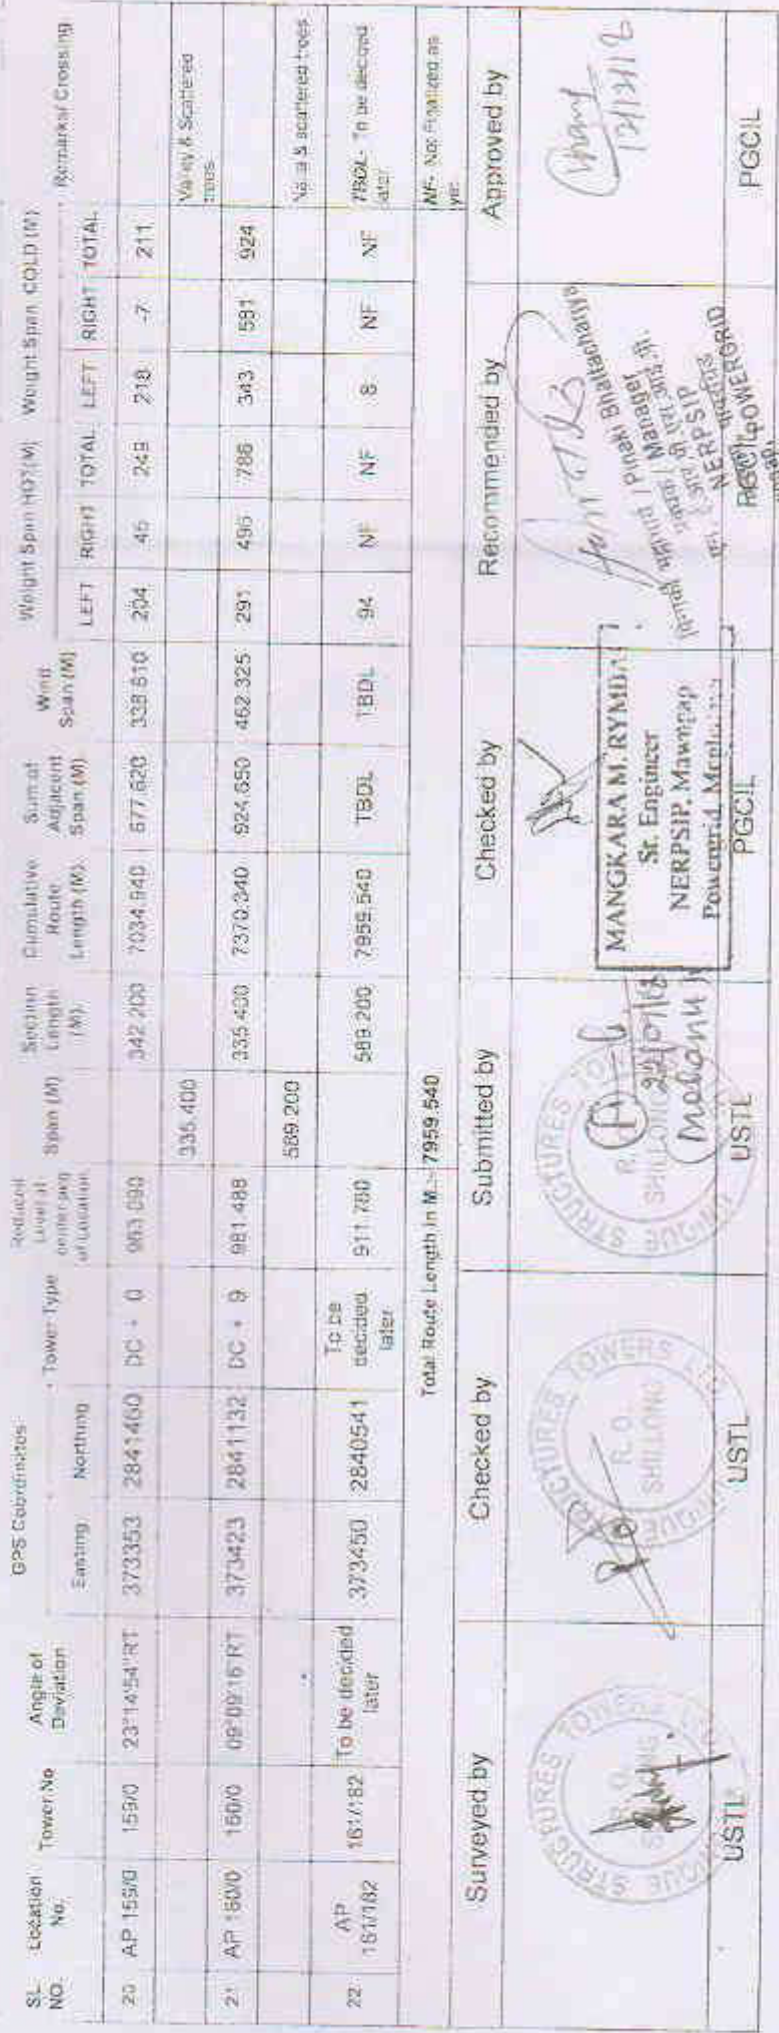 SL. NO. Location No. Tower No Angle of Deviation GPS Coordinates Easting Northing Tower Type Reduced Level at center peg of Location Span (M) Section Length (M). Cumulative Route Length (M). Sum of Adjacent Span (M) Wind Span (M) Weight Span HOT(M) LEFT RIGHT TOTAL Weight Span COLD (M) LEFT RIGHT TOTAL Remarks/ Crossing
20 AP 159/0 159/0 23°14'54"RT 373353 2841460 DC + 0 963.090 342.200 7034.940 677.620 338.810 204 45 249 218 -7 211
335.400 Valley & Scattered trees
21 AP 160/0 160/0 09°09'16"RT 373423 2841132 DC + 9 981.488 335.400 7370.340 924.650 462.325 291 495 786 343 581 924
589.200 & scattered trees
22 AP 161/182 161/182 To be decided later 373450 2840541 To be decided later 911.780 589.200 7959.540 TBDL TBDL 94 NF NF 8 NF NF TBDL- To be decided later
Total Route Length in M.:- 7959.540 NF- Not Finalized as yet
Surveyed by Checked by Submitted by Checked by Recommended by Approved by
UNIQUE STRUCTURES TOWERS LTD
R. O.
SHILLONG
UNIQUE STRUCTURES TOWERS LTD
R. O.
SHILLONG
UNIQUE STRUCTURES TO
R.
SHILLONG
MANGKARA M. RYMBAI
Sr. Engineer
NERPSIP, Mawngap
Powergrid,
/ Pinaki Bhattacharjya
/ Manager
NERPSIP
POWERGRID
USTL USTL USTL PGCIL PGCIL PGCIL